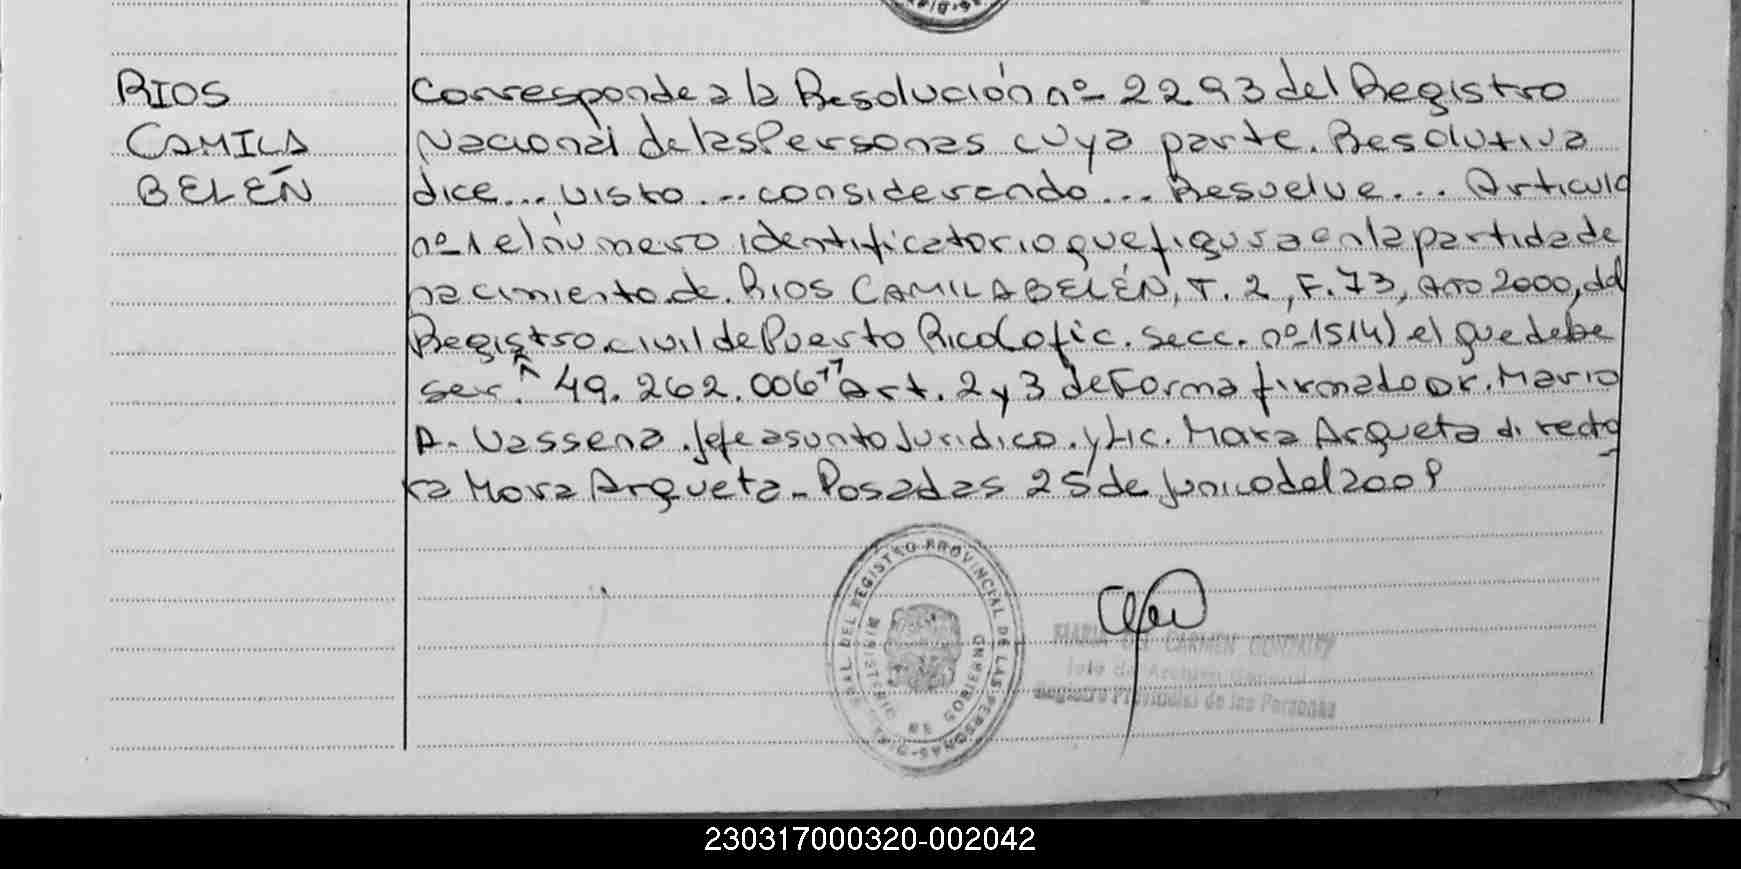 RIOS
CAMILA
BELÉN
Corresponde a la Resolución nº 2293 del Registro
Nacional de las Personas cuya parte. Resolutiva
dice... visto... considerando... Resuelve... Articulo
nº 1 el número identificatorio que figura en la partida de
nacimiento de RIOS CAMILA BELÉN, T. 2, F. 73, Año 2000, del
Registro civil de Puerto Rico (ofic. secc. nº 1514) el que debe
ser: "49.262.006" Art. 2 y 3 de Forma firmado Dr. Mario
A. Vassena. Jefe asunto Juridico. y Lic. Mora Arqueta directo
ra Mora Arqueta - Posadas 25 de junio del 2009
REGISTRO PROVINCIAL DE LAS PERSONAS
MINISTERIO DE GOBIERNO
MARIA DEL CARMEN
Jefe de Archivo General
Registro Provincial de las Personas
230317000320-002042